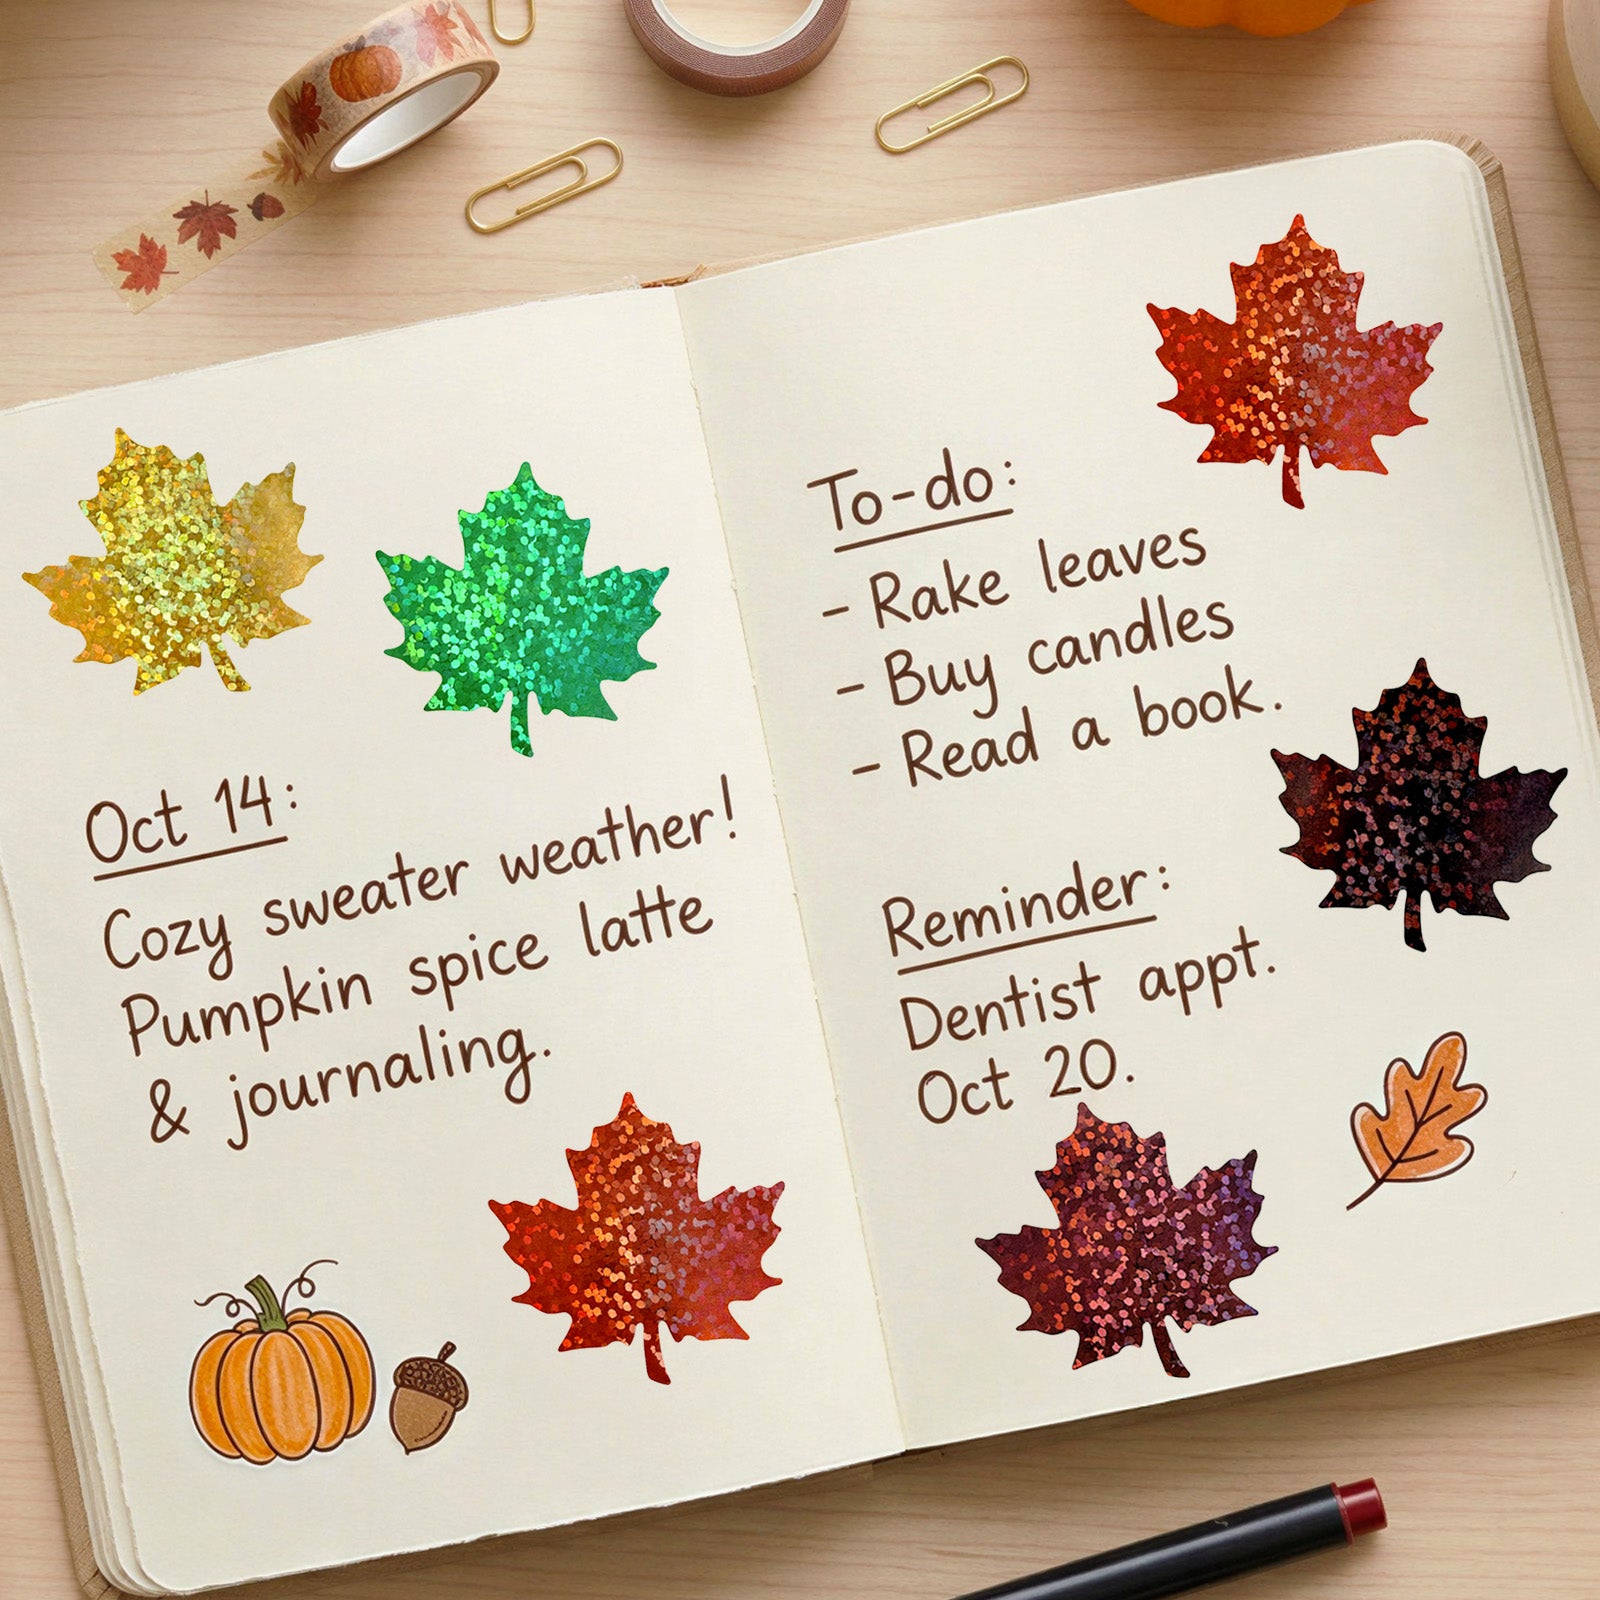 Oct 14:
Cozy sweater weather!
Pumpkin spice latte
& journaling.
To-do:
- Rake leaves
- Buy candles
- Read a book.
Reminder:
Dentist appt.
Oct 20.